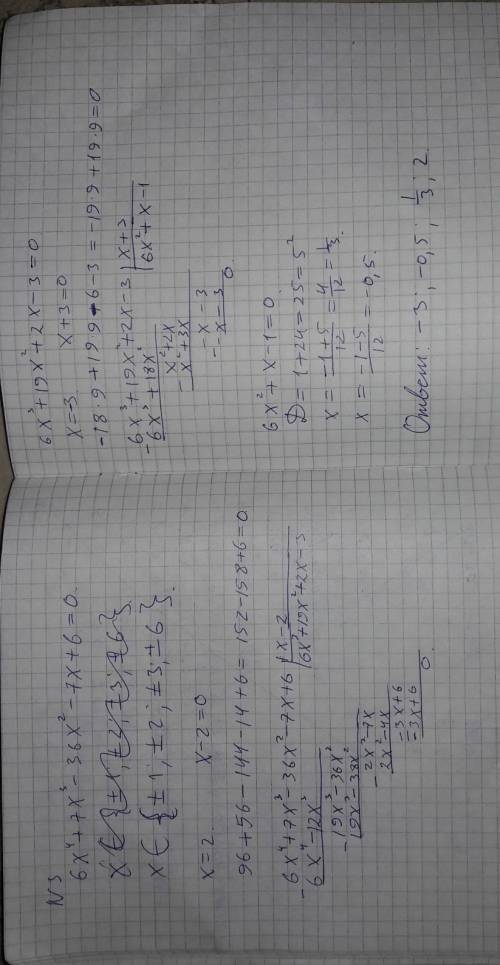 N3
6x⁴+7x³-36x²-7x+6=0.
x ∈ {±1; ±2; ±3; ±6}.
x ∈ {±1; ±2; ±3; ±6}.
x=2. x-2=0
96+56-144-14+6=152-158+6=0
-6x⁴+7x³-36x²-7x+6 | x-2
6x⁴-12x³ | 6x³+19x²+2x-3
-19x³-36x²
19x³-38x²
-2x²-7x
2x²-4x
-3x+6
-3x+6
0
6x³+19x²+2x-3=0
x=-3 x+3=0
-18·9+19·9-6-3=-19·9+19·9=0
-6x³+19x²+2x-3 | x+3
6x³+18x² | 6x²+x-1
-x²+2x
x²+3x
-x-3
-x-3
0
6x²+x-1=0.
D=1+24=25=5²
x=(-1+5)/12=4/12=1/3.
x=(-1-5)/12=-0,5.
Ответ: -3; -0,5; 1/3; 2.